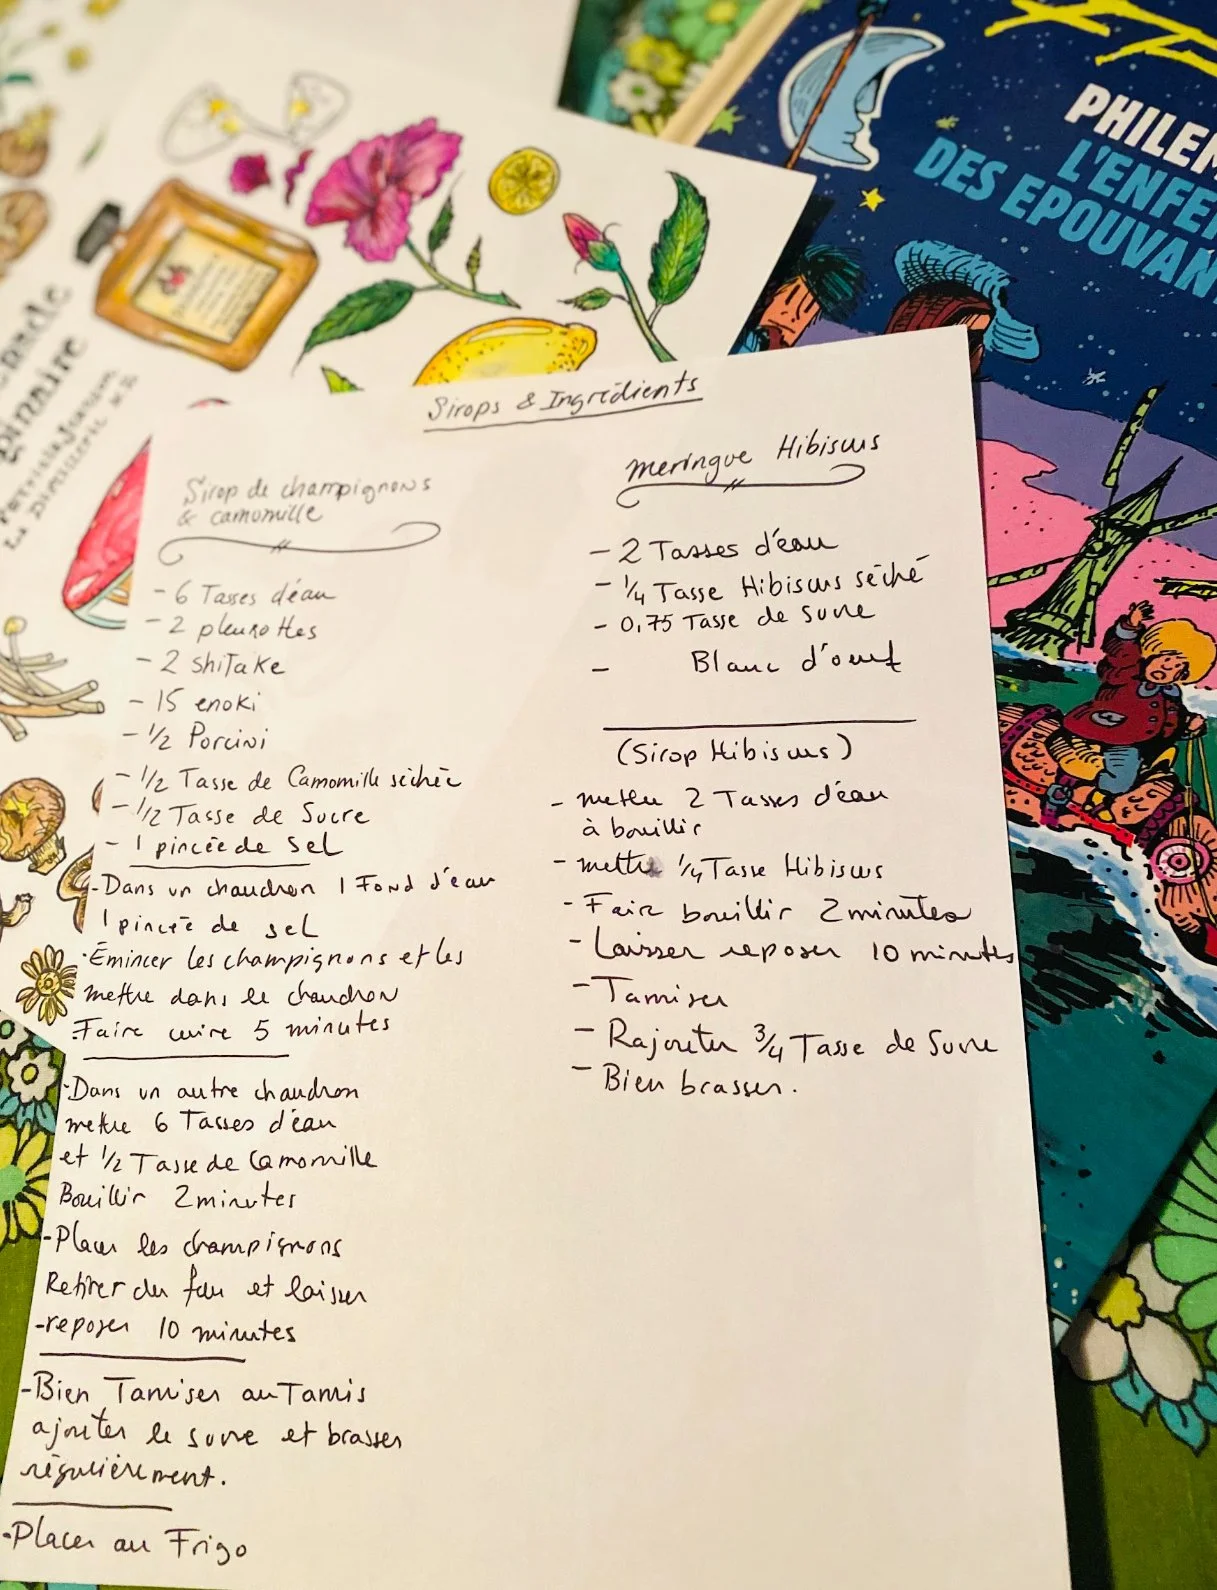 PHILEM
L'ENFE
DES EPOUVAN
Sirops & Ingrédients
Sirop de champignons
& camomille
- 6 Tasses d'eau
- 2 pleurottes
- 2 shiTake
- 15 enoki
- 1/2 Porcini
- 1/2 Tasse de Camomille séchée
- 1/2 Tasse de Sucre
- 1 pincée de sel
- Dans un chaudron 1 Fond d'eau
1 pincée de sel
- Émincer les champignons et les
mettre dans le chaudron
Faire cuire 5 minutes
- Dans un autre chaudron
mettre 6 Tasses d'eau
et 1/2 Tasse de Camomille
Bouillir 2 minutes
- Placer les champignons
Retirer du feu et laisser
- reposer 10 minutes
- Bien Tamiser au Tamis
ajouter le sucre et brasser
régulièrement.
- Placer au Frigo
Meringue Hibiscus
- 2 Tasses d'eau
- 1/4 Tasse Hibiscus séché
- 0,75 Tasse de sucre
- Blanc d'oeuf
(Sirop Hibiscus)
- mettre 2 Tasses d'eau
à bouillir
- mettre 1/4 Tasse Hibiscus
- Faire bouillir 2 minutes
- Laisser reposer 10 minutes
- Tamiser
- Rajouter 3/4 Tasse de Sucre
- Bien brasser.